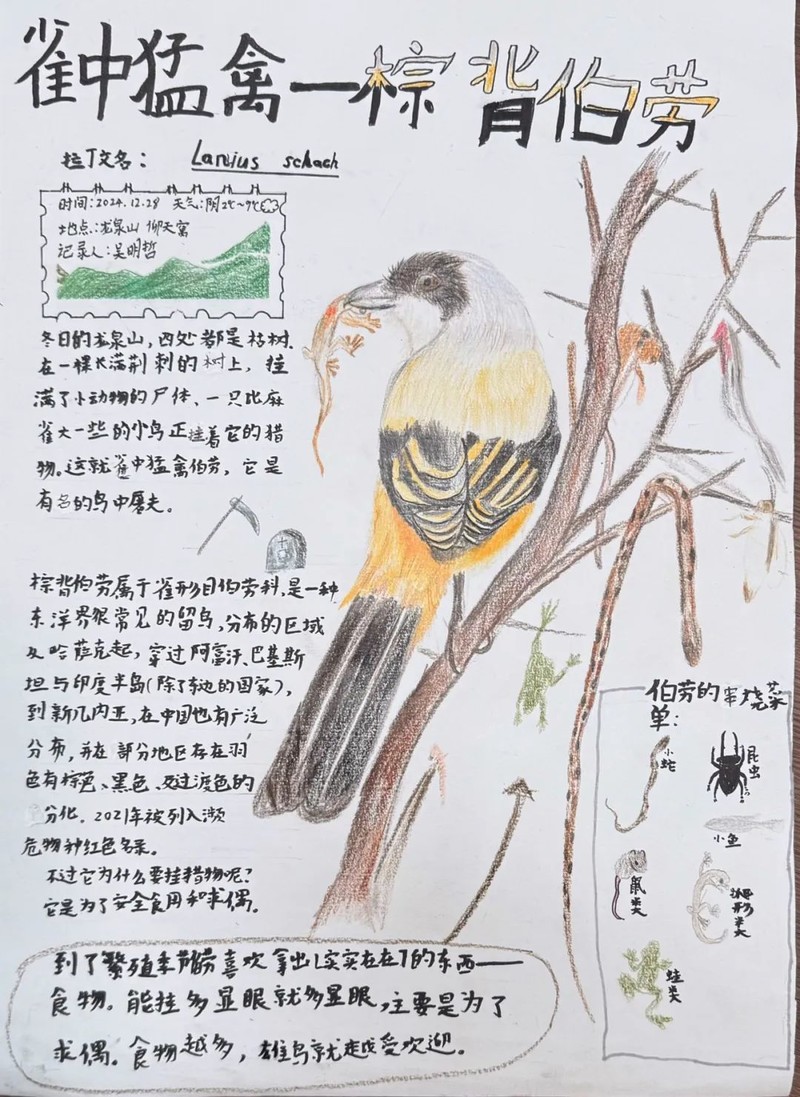 雀中猛禽一棕背伯劳
拉丁文名: Lanius schach
时间:2024.12.28 天气:阴2℃~9℃
地点:龙泉山 仰天窝
记录人:吴明哲
冬日的龙泉山,四处都是枯树.
在一棵长满荆刺的树上,挂
满了小动物的尸体、一只比麻
雀大一些的小鸟正挂着它的猎
物。这就雀中猛禽伯劳,它是
有名的鸟中屠夫。
棕背伯劳属于雀形目伯劳科,是一种
东洋界很常见的留鸟,分布的区域
从哈萨克起,穿过阿富汗、巴基斯
坦与印度半岛(除了东边的国家),
到新几内亚,在中国也有广泛
分布,并在部分地区存在羽
色有棕色、黑色、及过渡色的
分化. 2021年被列入濒
危物种红色名录。
不过它为什么要挂猎物呢?
它是为了安全食用和求偶。
到了繁殖季节伯劳喜欢拿出实实在在的东西——
食物。能挂多显眼就多显眼,主要是为了
求偶。食物越多,雄鸟就越受欢迎。
伯劳的串烧菜
单:
小蛇
昆虫
小鱼
鼠类
蜥形类
蛙类